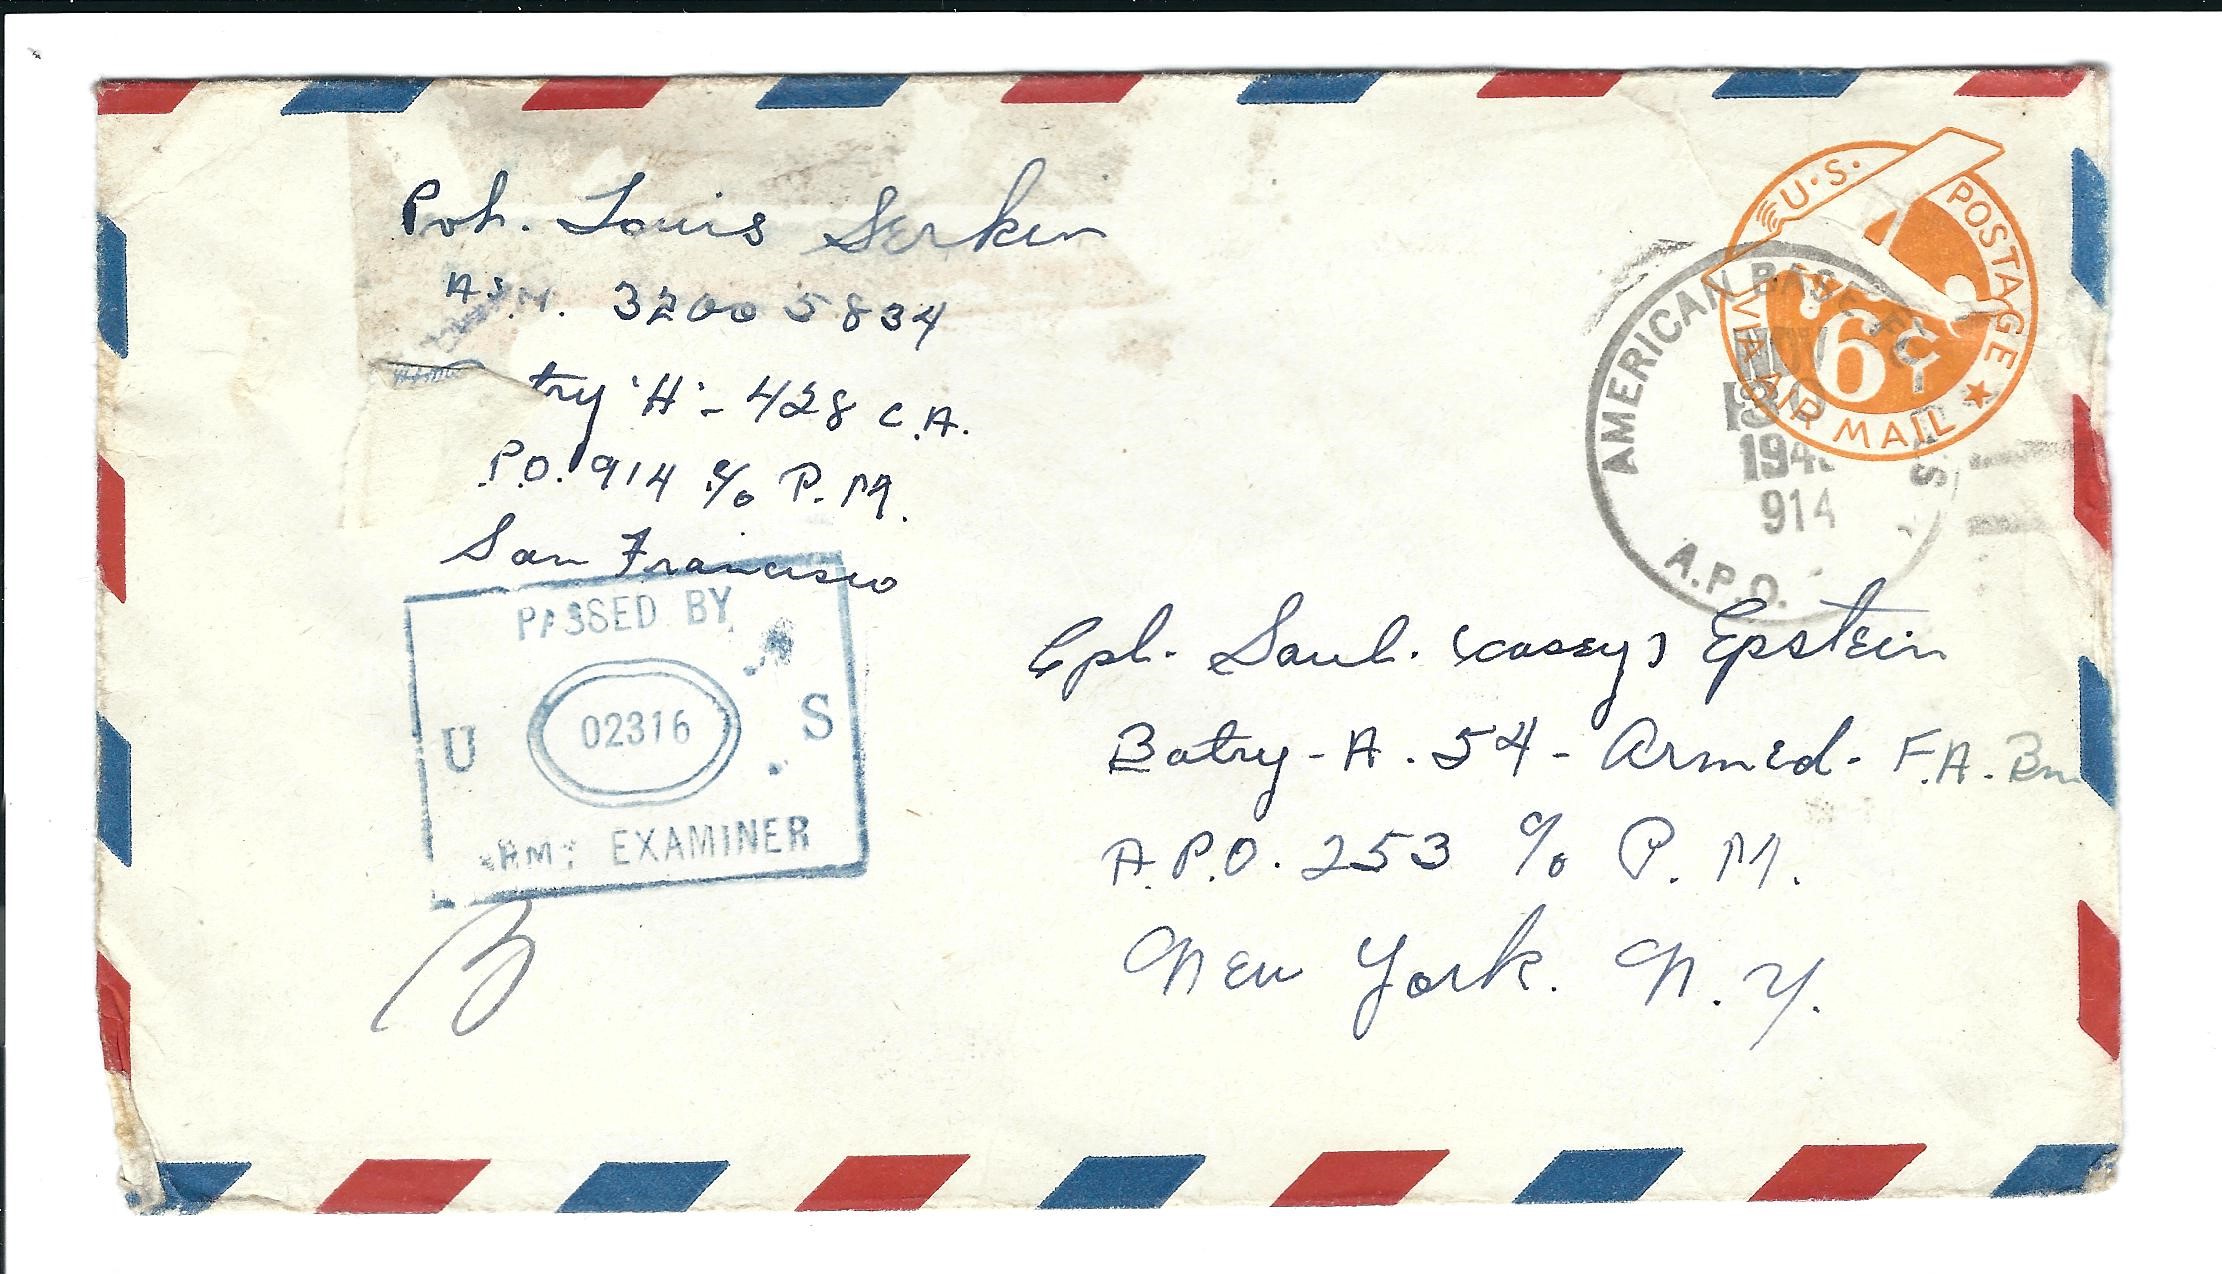 Pvt. Louis Serken
A.S.N. 32005834
try 'H' - 428 C.A.
P.O. 914 c/o P.M.
San Francisco
U.S. POSTAGE
VIA AIR MAIL
6¢
AMERICAN BASE
NOV
30
194
914
A.P.O.
PASSED BY
U S
02316
ARMY EXAMINER
Cpl. Saul. (Casey) Epstein
Batry - A. 54 - Armed. F.A. Bn
A.P.O. 253 c/o P.M.
New York. N.Y.